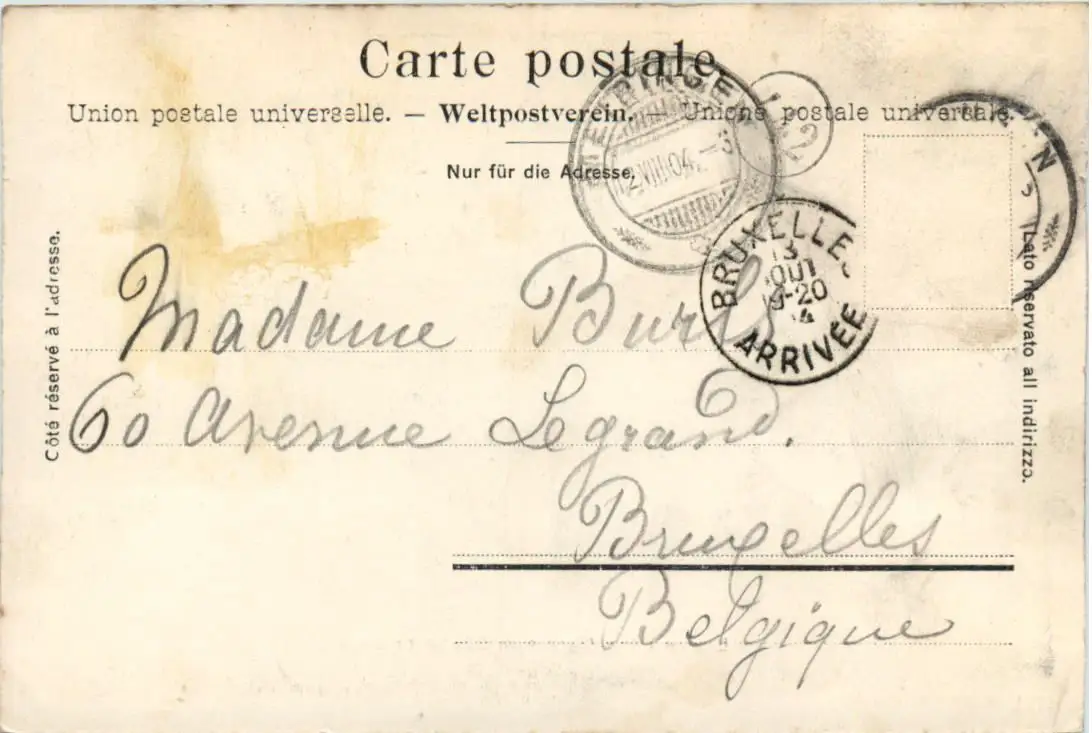 Carte postale.
Union postale universelle. — Weltpostverein. — Unione postale universale.
Nur für die Adresse.
Côté réservé à l'adresse.
Lato riservato all indirizzo.
MEIRINGEN
VIII 04
BRUXELLES
13
AOUT
-20
4
ARRIVÉE
Madame
60 Avenue Legrand.
Bruxelles
Belgique